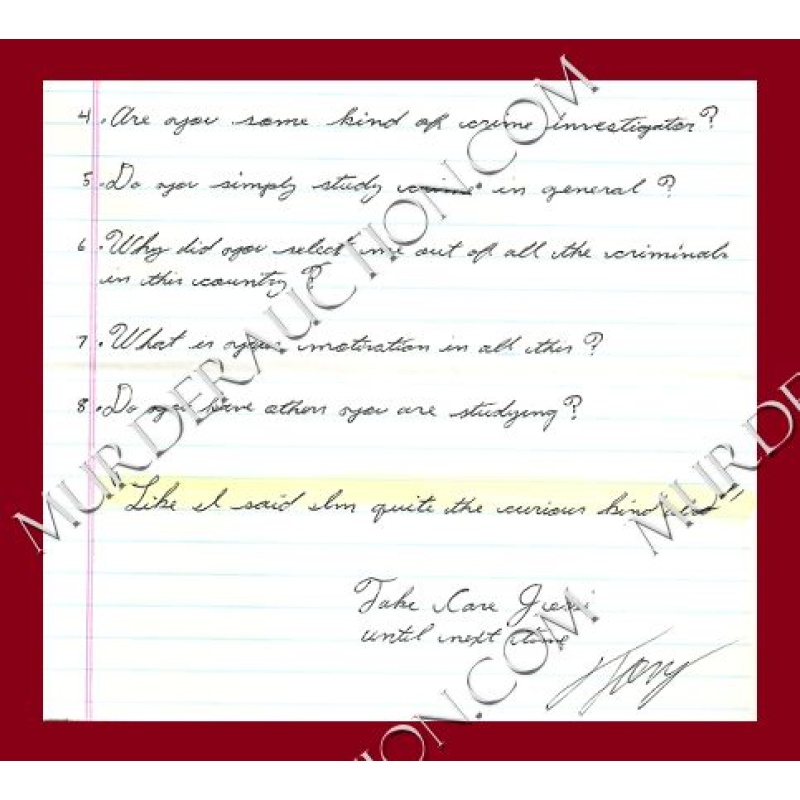 4. Are you some kind of crime investigator?
5. Do you simply study crime in general?
6. Why did you select me out of all the criminals
in this country?
7. What is your motivation in all this?
8. Do you have others you are studying?
"Like I said Im quite the curious kind"
Take Care
until next time
Tony
MURDERAUCTION.COM
MURDE
ION.COM